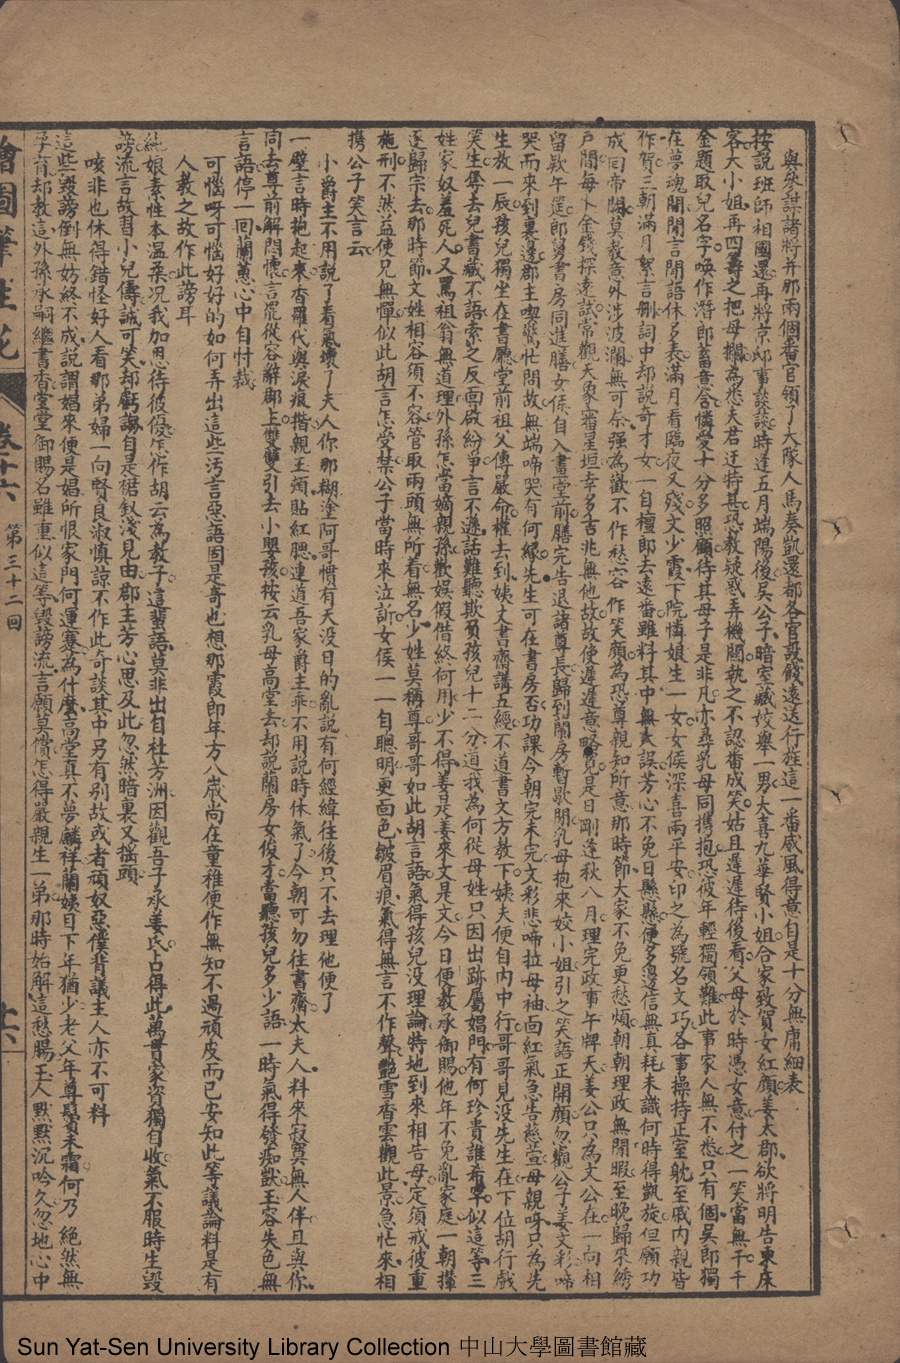 與參謀諸將并那兩個番官領了大隊人馬奏凱還都各官設餞遠送行旌這一番威風得意自是十分無庸細表
按說班師相國還再將京邸事談談時逢五月端陽後吳公子暗室藏姣舉一男大喜九華賢小姐合家致賀女紅顏姜太郡欲將明告東床
客大小姐再四籌之把母攔為恐夫君迂特甚恐教疑惑弄機關執之不認番成笑姑且遲遲待後看父母於時憑女意付之一笑當無干千
金題取兒名字喚作潛郎蓄意含憐愛十分多照顧待其母子是非凡亦尋乳母同攜抱恐彼年輕獨領難此事家人無不悉只有個吳郎獨
在夢魂閒閒言閒語休多表滿月看臨夜又殘文少霞下院憐娘生一女女侯深喜兩平安印之為號名文巧各事操持正室躭至戚內親皆
作賀三朝滿月絮言刪詞中却說奇才女一自檀郎去遠番雖料其中無大誤芳心不免日懸懸便多邊信無真耗未識何時得凱旋但願功
成回帝闕莫教意外涉波瀾無可奈強為歡不作愁容作笑顏為恐尊親知所意那時節大家不免更愁煩朝朝理政無閒暇至晚歸來綉
戶間每卜金錢探遠試常觀天象審星垣幸多吉兆無他故故使遲遲意畧寬是日剛逢秋八月理完政事午牌天姜公只為文公在一向相
留欵午筵郎舅書房同進膳女侯自入畫堂前膳完告退諸尊長歸到蘭房暫歇閒乳母抱來姣小姐引之笑語正開顏忽觀公子姜文彩啼
哭而來到裏邊郡主喫驚忙問故無端啼哭有何緣先生可在書房否功課今朝完未完文彩悲啼拉母袖面紅氣急告慈萱母親呀只為先
生放一辰孩兒獨坐在書廳堂前祖父傳嚴命權去到姨丈書齋講五經不道書文方教下姨夫便自內中行哥哥見没先生在下位胡行戲
笑生奪去兒書藏不語索之反面啟紛爭言不遜話難聽欺負孩兒十二分道我為何從母姓只因出跡屬娼門有何珍貴誰希罕似這等三
姓家奴羞死人又罵祖翁無道理外孫怎當嫡親孫歡娛假借終何用少不得姜是姜來文是文今日便教承御賜他年不免亂家庭一朝攆
逐歸宗去那時節文姓相容須不容管取兩頭無所着無名少姓莫稱尊哥哥如此胡言語氣得孩兒没理論特地到來相告母定須戒彼重
施刑不然益使兄無憚似此胡言怎受禁公子當時來泣訴女侯一一自聰明更面色皺眉痕氣得無言不作聲艷雪香雲觀此景急忙來相
携公子笑言云
小爵主不用說了看氣壞了夫人你那糊塗阿哥慣有天没日的亂說有何經緯往後只不去理他便了
一壁言時抱起來杏羅代與淚痕揩親王頰貼紅腮連道吾家爵主乖不用說時休氣了今朝可勿往書齋太夫人料來寂寞無人伴且與你
同去尊前解悶懷言罷從容辭郡上雙雙引去小嬰孩按云乳母高堂去却說蘭房女俊才當聽孩兒多少語一時氣得發痴獃玉容失色無
言語停一回蘭蕙心中自忖裁
可惱呀可惱好好的如何弄出這些污言惡語固是奇也想那霞郎年方八歲尚在童稚便作無知不過頑皮而已安知此等議論料是有
人教之故作此謗耳
純娘素性本溫柔况我加恩待彼優怎作胡云為教子這蜚語莫非出自杜芳洲因觀吾子承姜氏占得此萬貫家資獨自收氣不服時生毀
謗流言故習小兒儔誠可笑却虧謅自是裙釵淺見由郡主芳心思及此忽然暗裏又搖頭
咳非也休得錯怪好人看那弟婦一向賢良淑慎諒不作此奇談其中另有別故或者頑奴惡僕背議主人亦不可料
這些毀謗倒無妨終不成說謂娼來便是娼所恨家門何運蹇為什麼高堂真不夢麟祥蘭姨目下年猶少老父年尊鬢未霜何乃絕然無
孕育却教這外孫承嗣繼書香堂堂御賜名雖重似這等毀謗流言願莫償怎得嚴親生一弟那時始解這愁腸玉人默默沉吟久忽地心中
繪圖筆生花
卷十六
第三十二回
十六
Sun Yat-Sen University Library Collection 中山大學圖書館藏